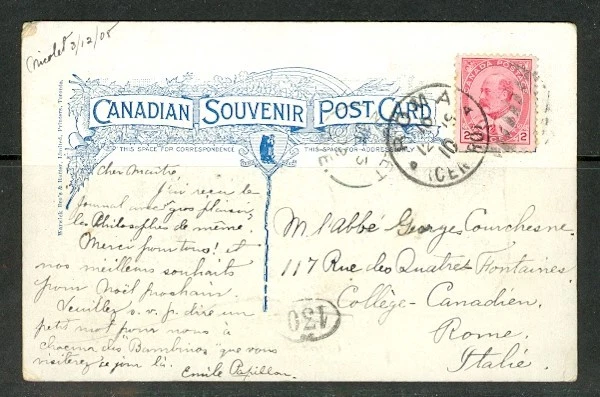 Nicolet 3/12/05
CANADIAN SOUVENIR POST CARD
THIS SPACE FOR CORRESPONDENCE
THIS SPACE FOR ADDRESS
Warwick Bro's & Rutter, Limited, Printers, Toronto.
CANADA POSTAGE
2
ROMA
10
CENTRO
Cher Maître,
J'ai reçu le
Journal avec gros plaisir,
les Philosophes de même.
Merci pour tous! et
nos meilleurs souhaits
pour Noël prochain.
Veuillez s.v.p. dire un
petit mot pour nous à
chacun des "Bambinos" que vous
visiterez ce jour là.
Emile Papillon
M. l'abbé Georges Courchesne
117 Rue des Quatres Fontaines
Collège-Canadien.
Rome.
Italie.
130